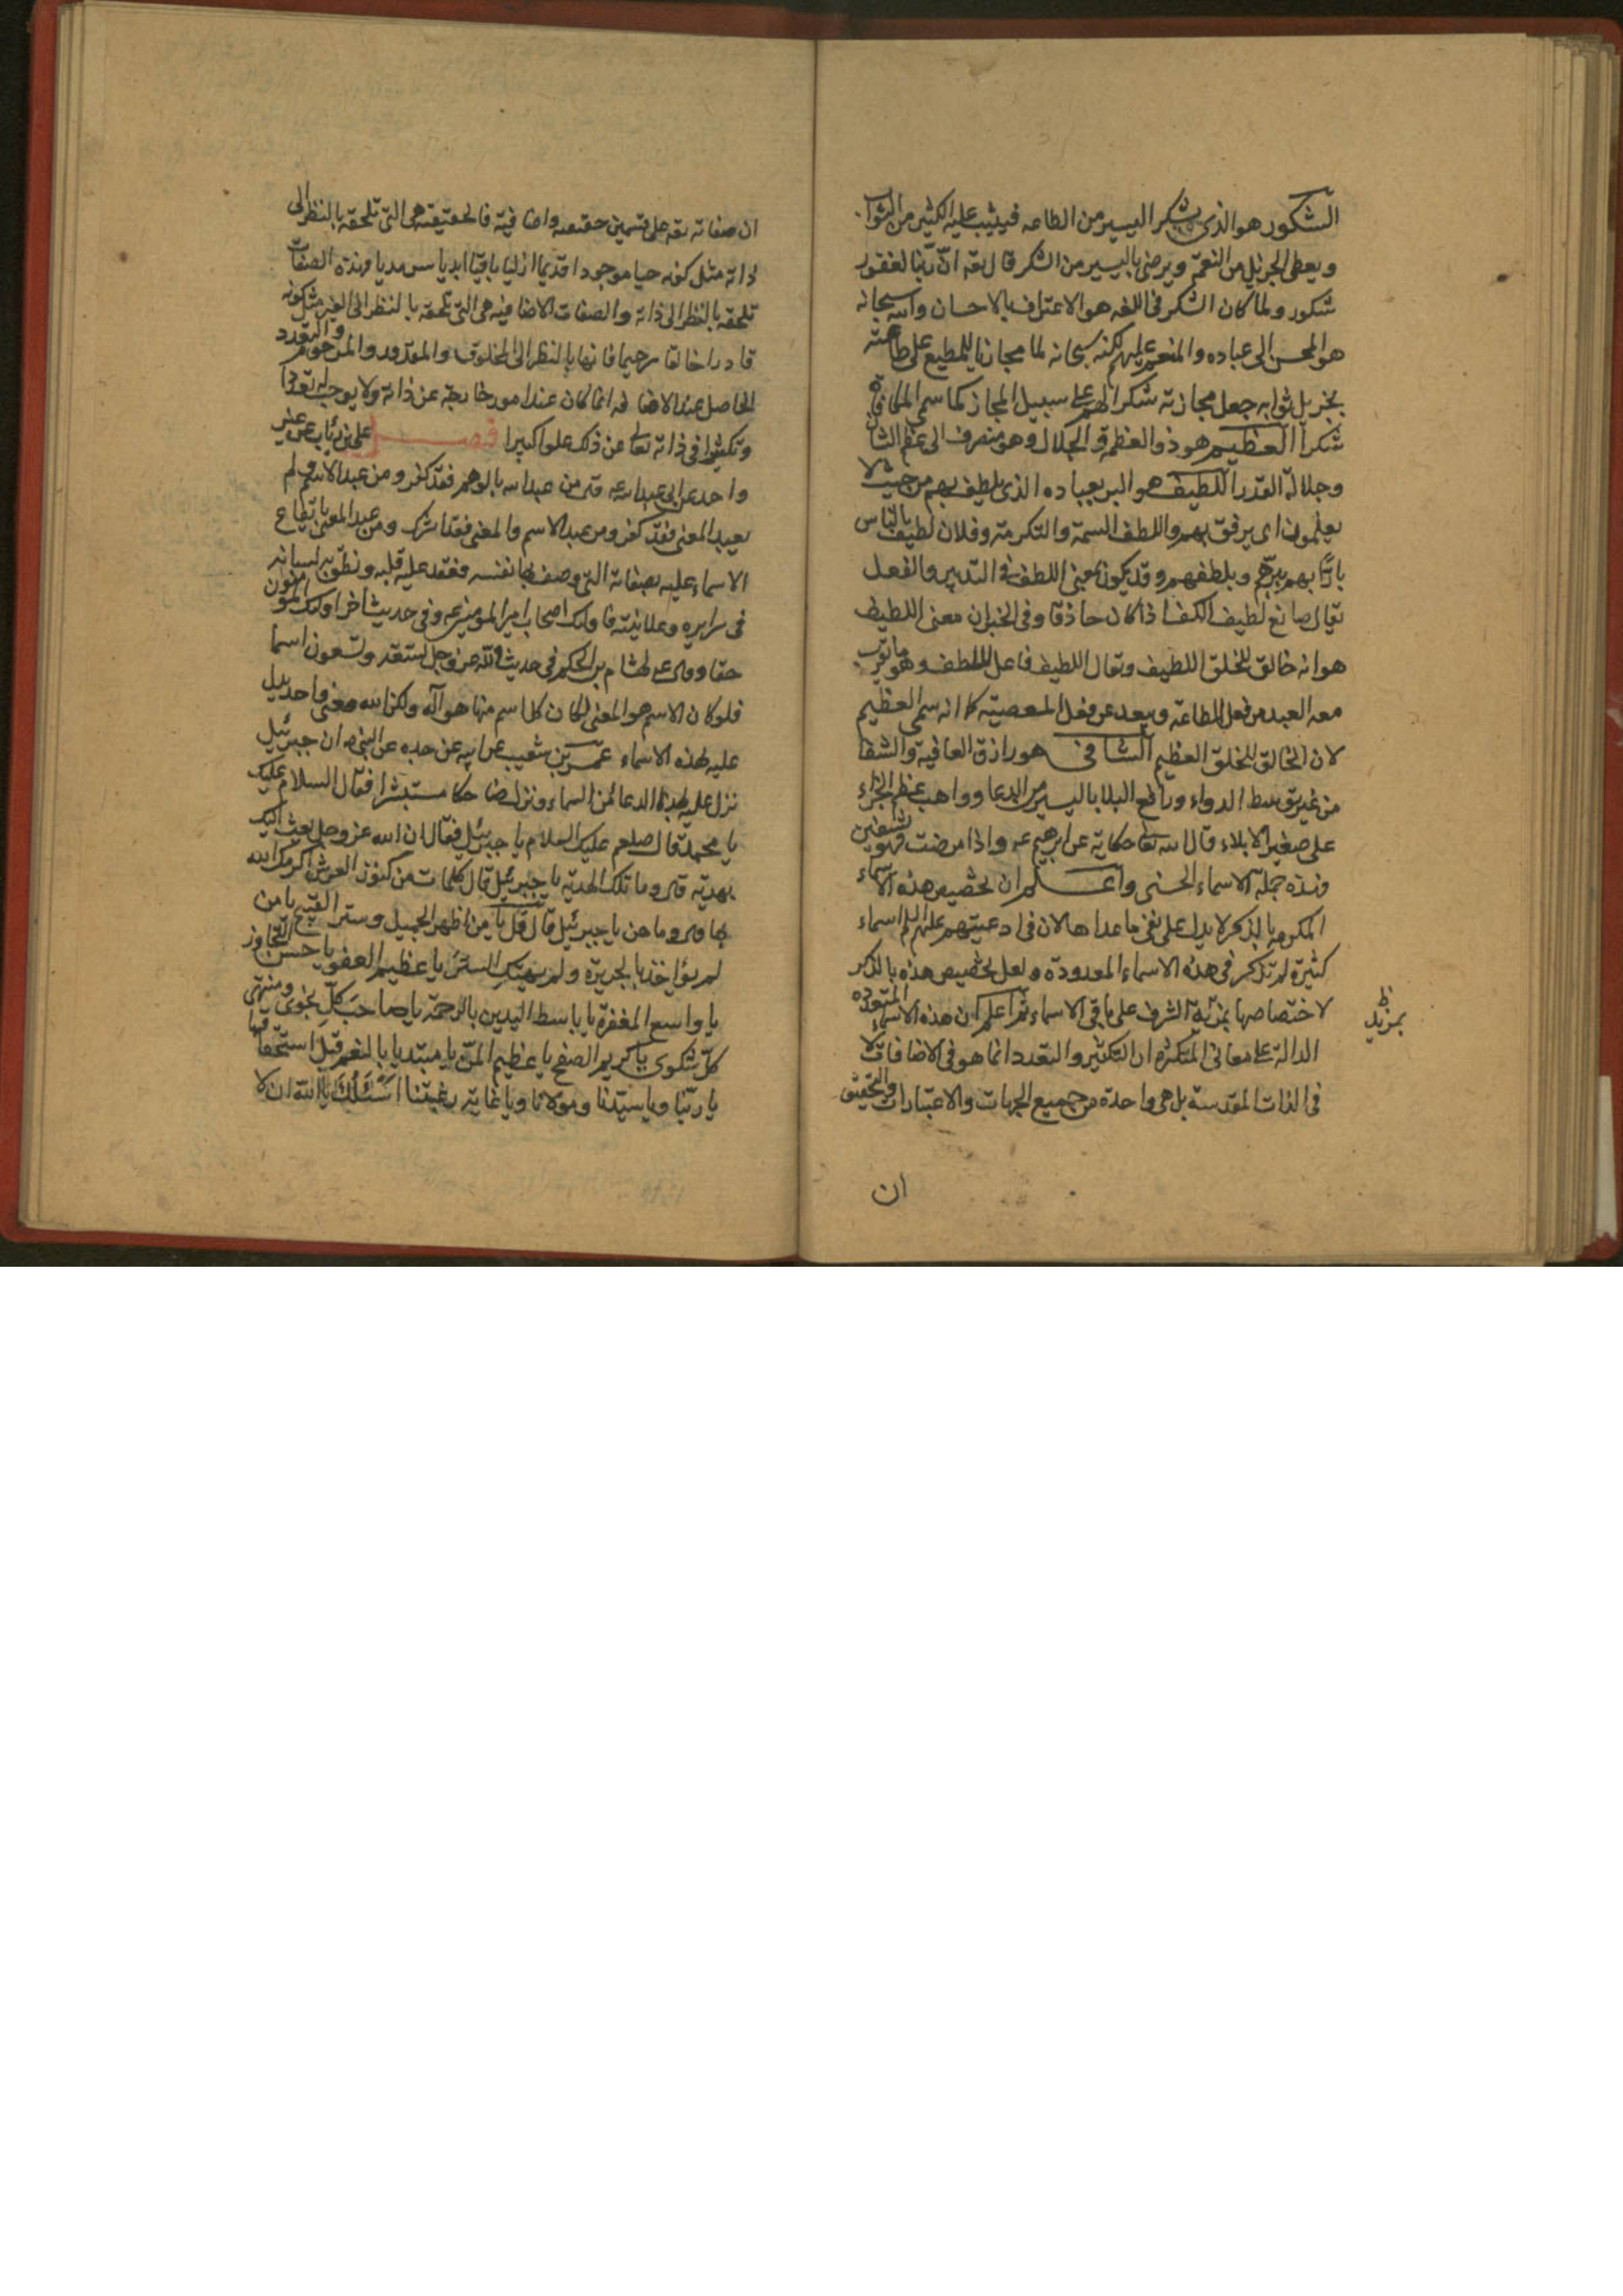 الشكور هو الذي يشكر اليسير من الطاعه فيثيب عليه الكثير من الثواب
ويعطى الجزيل من النعمة ويرضى باليسير من الشكر قال تعه ان ربنا لغفور
شكور ولما كان الشكر في اللغه هو الاعتراف بالاحسان والله سبحانه
هو المحسن الى عباده والمنعم عليهم لكنه سبحانه لما مجازيا للمطيع على طاعته
بجزيل ثوابه جعل مجازته شكرا لهم على سبيل المجاز كما سمى المكافاة
شكرا العظيم هو ذو العظمة والجلال وهو منصرف الى عظم الشان
وجلالة القدر اللطيف هو البر بعباده الذي يلطف بهم من حيث لا
يعلمون اى يرفق بهم واللطف البسمة والتكرمة وفلان لطيف بالناس
بارّا بهم يبرّهم ويلطفهم وقد يكون بمعنى اللطف في التدبير والفعل
يقال صانع لطيف الكف اذا كان حاذقا وفى الخبر ان معنى اللطيف
هو انه خالق للخلق اللطيف ويقال اللطيف فاعل اللطف وهو ما يقرب
معه العبد من فعل الطاعة ويبعد عن فعل المعصية كما انه سمى العظيم
لان الخالق للخلق العظيم الشافى هو رازق العافية والشفا
من غير توسط الدواء ورافع البلا باليسير من الدعا وواهب عظيم الجزاء
على صغير الابلاء قال الله تعا حكاية عن ابرهيم عه واذا مرضت فهو يشفين
وهذه جملة الاسماء الحسنى واعلم ان تخصيص هذه الاسماء
المكرمة بالذكر لا يدل على نفى ما عداها لان في ادعيتهم عليهم السلم اسماء
كثيرة لم تذكر في هذه الاسماء المعدودة ولعل تخصيص هذه بالذكر
لاختصاصها بمزية الشرف على باقى الاسماء ثم اعلم ان هذه الاسماء المتعدده
بمزيد
الدالة على معانى المتكثره ان التكثير والتعدد انما هو فى الاضافات لا
في الذات المقدسة بل هى واحدة من جميع الجهات والاعتبارات والتحقيق
ان
ان صفاته تعه على قسمين حقيقيه واضافية فالحقيقية هى التى تلحقه بالنظر الى
ذاته مثل كونه حيا موجودا قديما ازليا باقيا ابديا سرمديا وهذه الصفات
تلحقه بالنظر الى ذاته والصفات الاضافية هى التى تلحقه بالنظر الى الغير مثل كونه
قادرا خالقا رحيما فانها بالنظر الى المخلوق والمقدور والمرحوم والتعدد
الحاصل عند الاضافه انما كان عند امور خارجة عن ذاته ولا يوجب له تعددا
وتكثرا في ذاته تعالى عن ذلك علوا كبيرا فصل على بن رئاب عن غير
واحد عن ابى عبد الله عه قال من عبد الله بالوهم فقد كفر ومن عبد الاسم ولم
يعبد المعنى فقد كفر ومن عبد الاسم والمعنى فقد اشرك ومن عبد المعنى بايقاع
الاسماء عليه بصفاته التى وصف بها نفسه فعقد عليه قلبه ونطق به لسانه
فى سرايره وعلانيته فاولئك اصحاب امير المومنين عه وفى حديث اخر اولئك المؤمنون
حقا وقال عه لهشام بن الحكم فى حديث لله عز وجل تسعة وتسعون اسما
فلو كان الاسم هو المعنى لكان كل اسم منها هو آله ولكن الله معنى واحد يدل
عليه بهذه الاسماء عمرو بن شعيب عن ابيه عن جده عن النبى ص ان جبرئيل
نزل عليه بهذا الدعا من السماء ونزل ضاحكا مستبشرا فقال السلام عليك
يا محمد قال صلعم عليك السلام يا جبرئيل فقال ان الله عز وجل بعث اليك
بهدية قال وما تلك الهدية يا جبرئيل قال كلمات من كنوز العرش اكرمك الله
بها قال وما هن يا جبرئيل قال قل يا من اظهر الجميل وستر القبيح يا من
لم يؤاخذ بالجريرة ولم يهتك الستر يا عظيم العفو يا حسن التجاوز
يا واسع المغفرة يا باسط اليدين بالرحمة يا صاحب كل نجوى ومنتهى
كل شكوى يا كريم الصفح يا عظيم المن يا مبتديا بالنعم قبل استحقاقها
يا ربنا ويا سيدنا ومولانا ويا غاية رغبتنا اسئلك يا الله ان لا